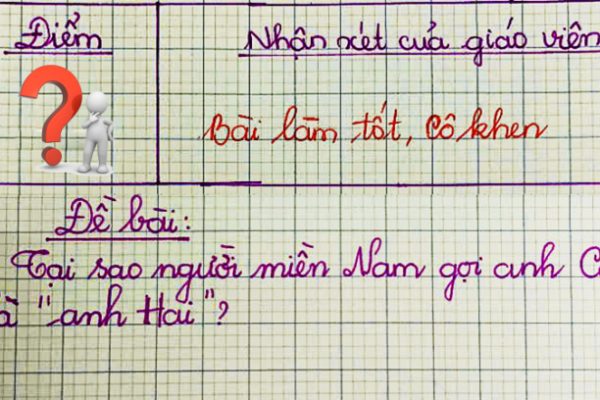 Điểm
Nhận xét của giáo viên
Bài làm tốt, Cô khen
Đề bài:
Tại sao người miền Nam gọi anh C
à "anh Hai"?